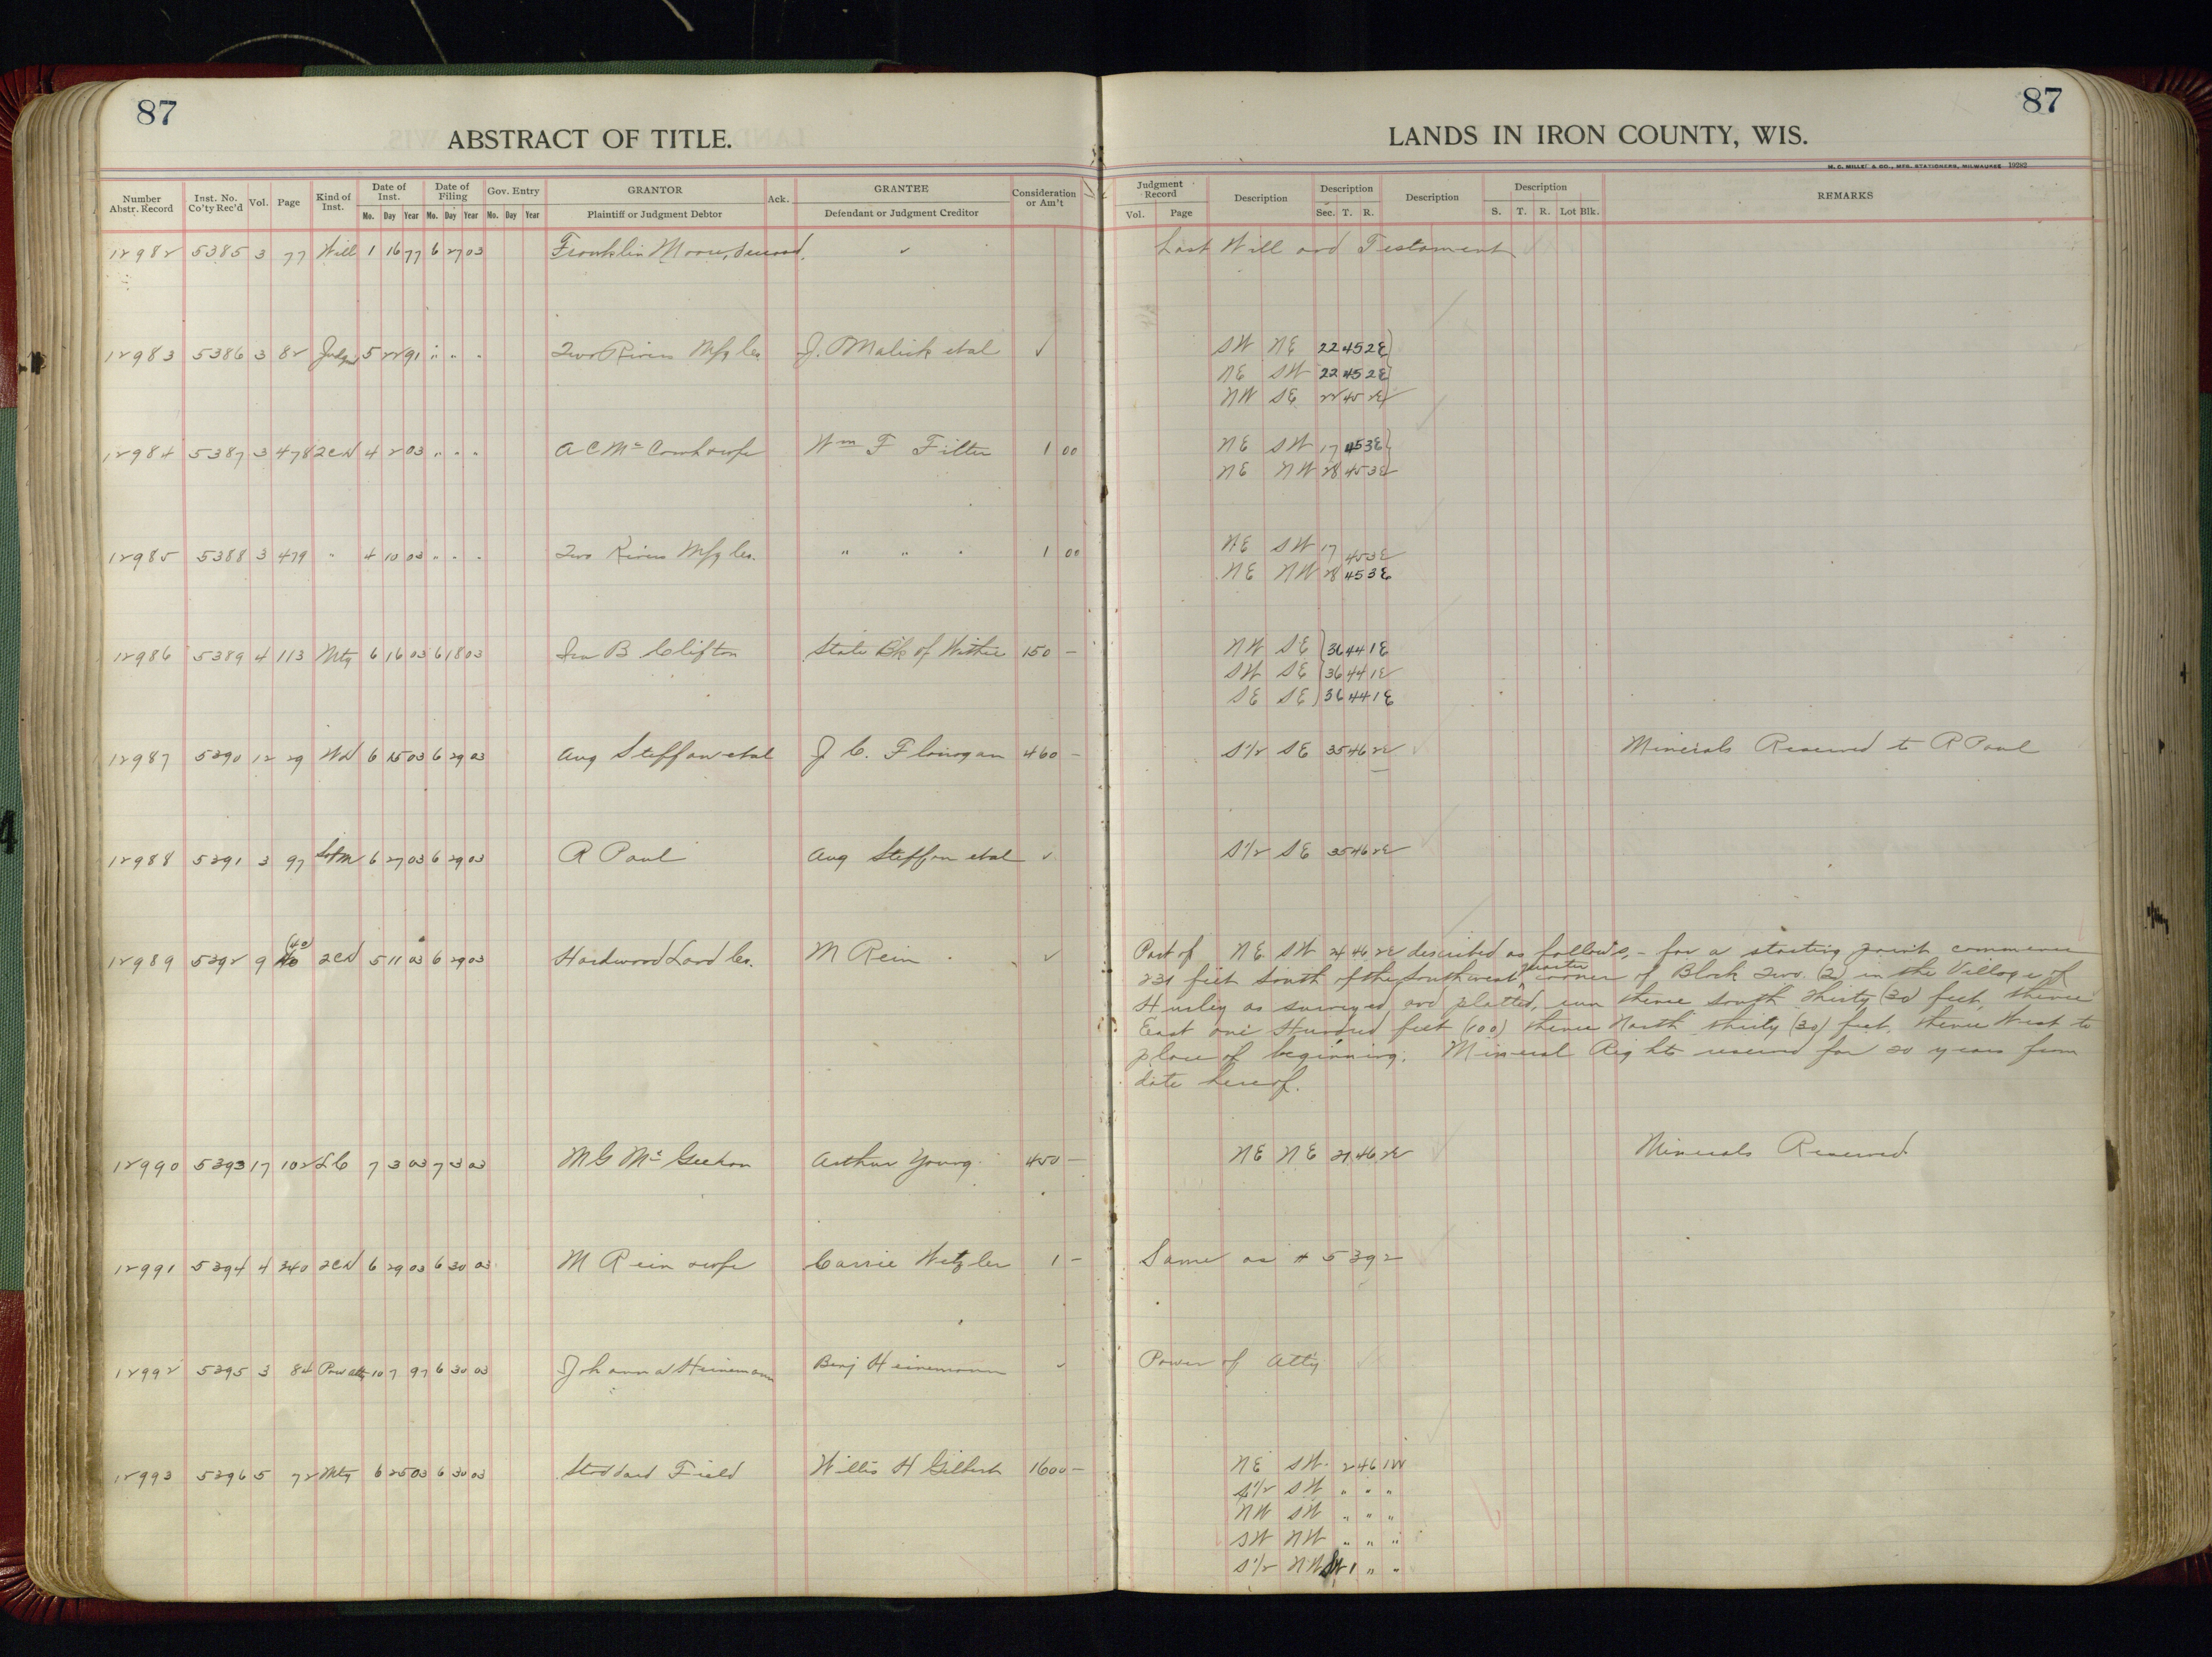 87
87
ABSTRACT OF TITLE.
LANDS IN IRON COUNTY, WIS.
M. C. MILLET & CO., MFG. STATIONERS, MILWAUKEE 19282
Number Abstr. Record Inst. No. Co'ty Rec'd Vol. Page Kind of Inst. Date of Inst. Mo. Day Year Date of Filing Mo. Day Year Gov. Entry Mo. Day Year GRANTOR Plaintiff or Judgment Debtor Ack. GRANTEE Defendant or Judgment Creditor Consideration or Am't
Judgment Record Vol. Page Description Description Sec. T. R. Description Description S. T. R. Lot Blk. REMARKS
12982 5385 3 77 Will 1 16 77 6 27 03 Franklin Moore, deceased, ✓ Last Will and Testament
12983 5386 3 82 Judgm 5 22 91 " " " Two Rivers Mfg Co. J. O Malick etal ✓ SW NE 22 45 2E
NE SW 22 45 2E
NW SE 22 45 2E
12984 5387 3 478 2CD 4 2 03 " " " A C Mc Comb & wife Wm F Filter 1 00 NE SW 17 45 3E
NE NW 28 45 3E
12985 5388 3 479 " 4 10 03 " " " Two Rivers Mfg Co. " " " 1 00 NE SW 17 45 3E
NE NW 28 45 3E
12986 5389 4 113 Mtg 6 16 03 6 18 03 Ira B Clifton State Bk of Withee 150 – NW SE 36 44 1E
SW SE 36 44 1E
SE SE 36 44 1E
12987 5390 12 29 WD 6 15 03 6 29 03 Aug Steffan etal J. C. Flanagan 460 – S1/2 SE 35 46 2E Minerals Reserved to R Paul
12988 5391 3 97 6 27 03 6 29 03 R Paul Aug Steffan etal ✓ S1/2 SE 35 46 2E
12989 5392 9 (40) 2CD 5 11 03 6 29 03 Hardwood Land Co. M Rein ✓ Part of NE SW 24 46 2E described as follows, – for a starting point commence
231 feet South of the Southwest quarter corner of Block Two (2) in the Village of
Hurley as surveyed and platted, run thence South thirty (30) feet, thence
East one Hundred feet (100) thence North thirty (30) feet, thence West to
place of beginning. Mineral Rights reserved for 20 years from
date hereof.
12990 5393 17 102 LC 7 3 03 7 3 03 M G Mc Geehan Arthur Young 450 – NE NE 21 46 2E Minerals Reserved
12991 5394 4 340 2CD 6 29 03 6 30 03 M Rein & wife Carrie Wetzler 1 – Same as # 5392
12992 5395 3 84 Pow atty 10 7 97 6 30 03 Johanna Heinemann Benj Heinemann ✓ Power of Atty
12993 5396 5 72 Mtg 6 25 03 6 30 03 Stoddard Field Willis H Gilbert 1600 – NE SW 2 46 1W
S1/2 SW " " "
NW SW " " "
SW NW " " "
S1/2 NW 1 " "